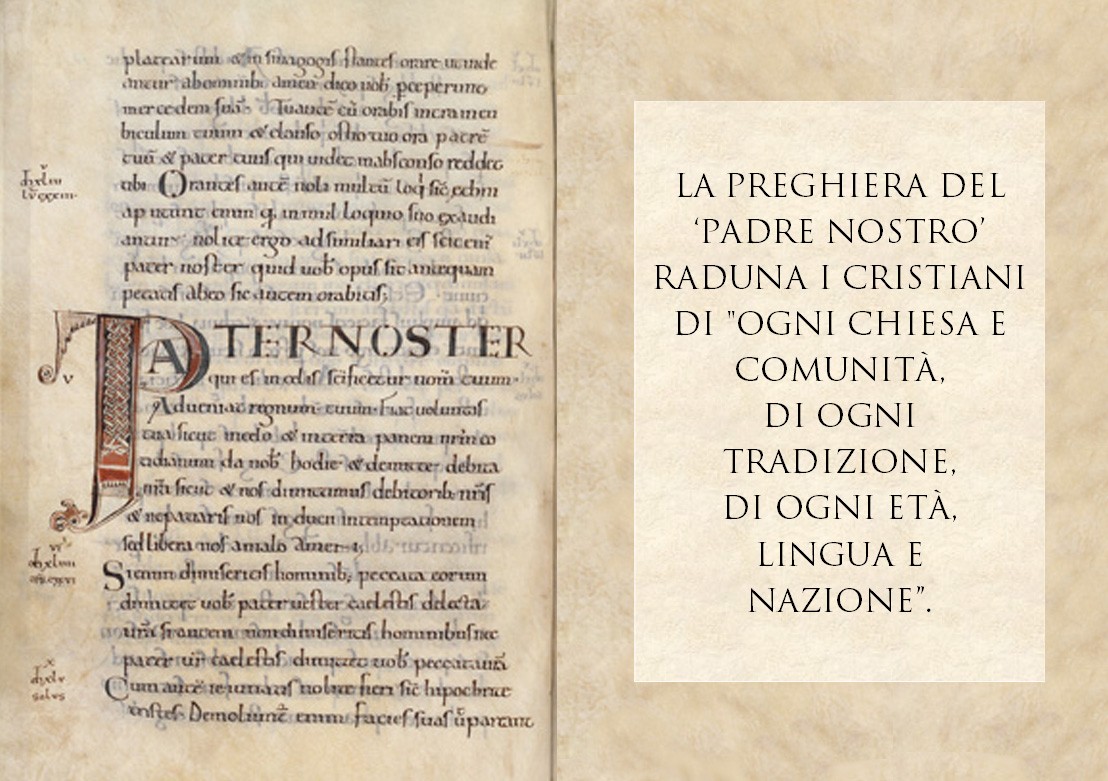 platearum & in sinagogis stantes orare ut uide
antur ab hominib; amen dico uob perceperunt
mercedem suā. Tu autē cū orabis intra in cu
biculum tuum & clauso ostio tuo ora patrē
tuū & pater tuus qui uidet in absconso reddet
tibi Orantes autē nolite multū loqi sic ethni
enim in multiloquio suo exaudi
antur nolite ergo adsimilari eis scit enī
pater uoster quid uob opus sit antequam
petatis ab eo sic autem orabitis;
PATER NOSTER
qui es in celis scificetur nom tuum.
Adueniat regnum tuum. Fiat uoluntas
tua sicut in celo & in terra panem nrm co
tidianum da nob hodie & demitte debita
nra sicut & nos dimittimus debitorib; nris
& ne patiaris nos induci in temptationem
sed libera nos a malo Amen
Si enim dimiseritis hominib; peccata eorum
dimittet uob pater uester caelestis delicta
ura si autem non dimiseritis hominibus nec
pater ur caelestis dimittet uob peccata urā
Cum autē ieiunatis nolite fieri sic hipochrite
tristes. Demoliunt enim facies suas ut pareant
LA PREGHIERA DEL
‘PADRE NOSTRO’
RADUNA I CRISTIANI
DI "OGNI CHIESA E
COMUNITÀ,
DI OGNI
TRADIZIONE,
DI OGNI ETÀ,
LINGUA E
NAZIONE”.